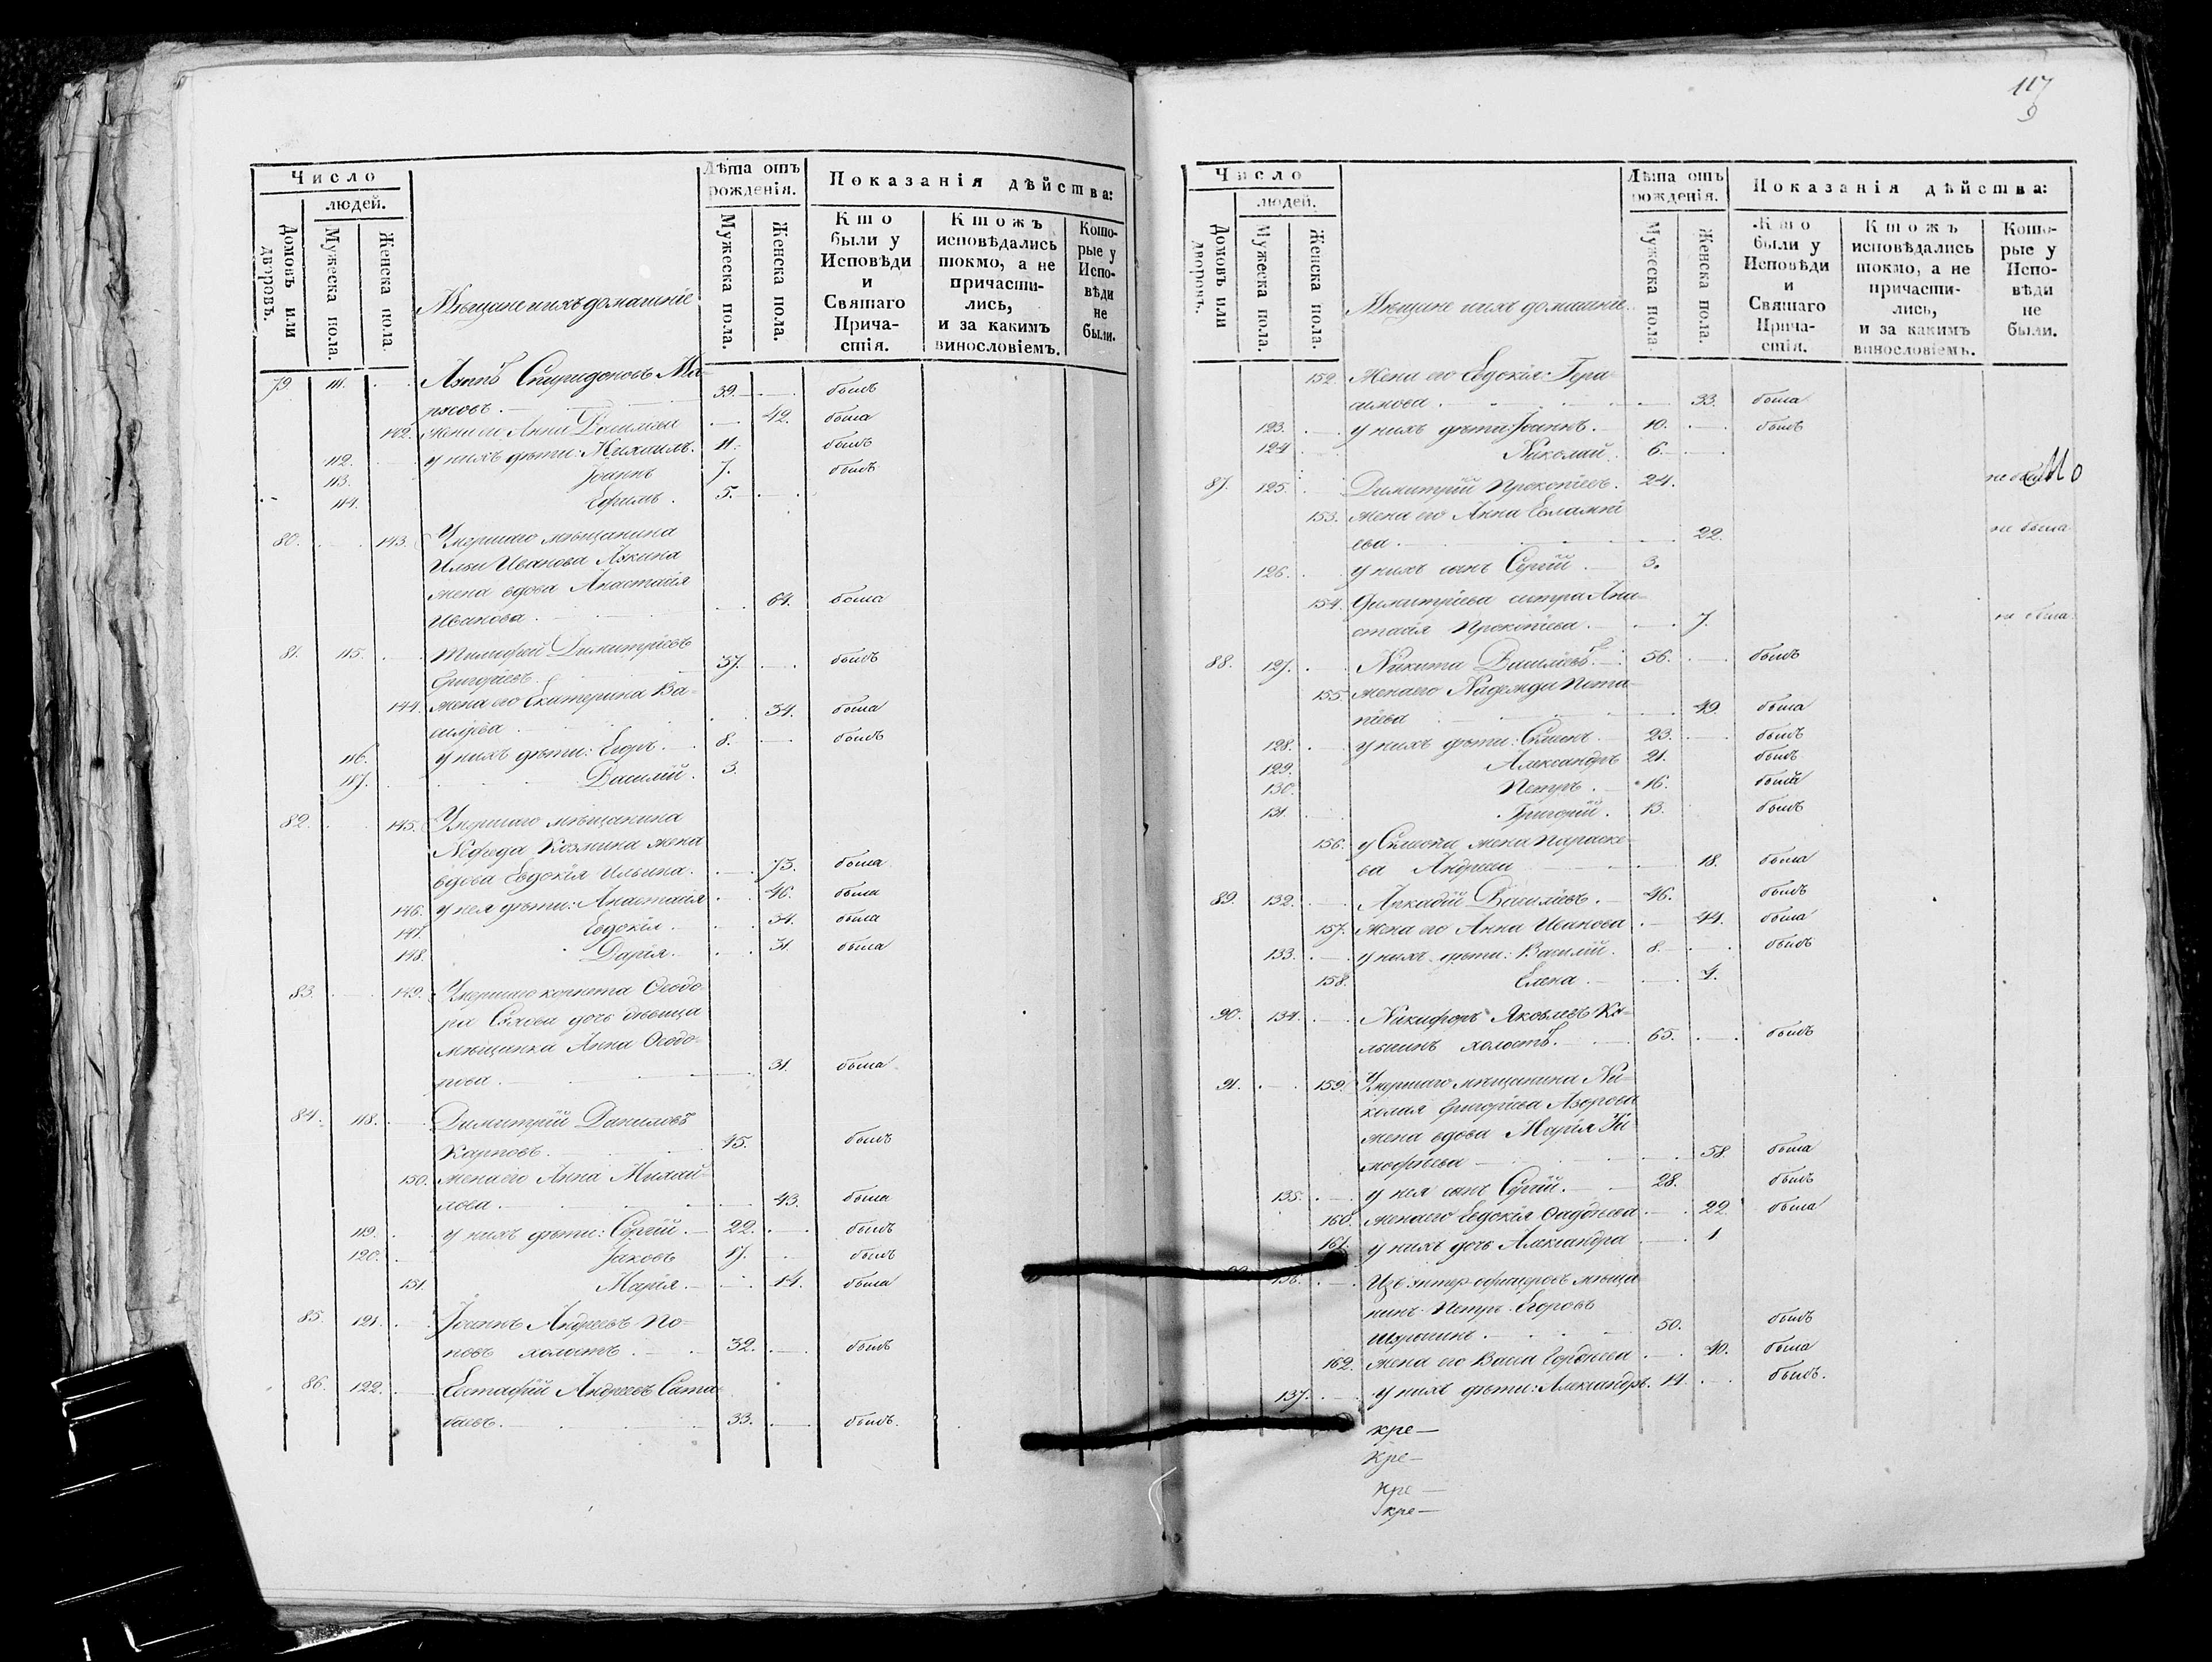 Число
людей.
Домовъ или дворовъ.
Мужеска пола.
Женска пола.
Мѣщане и ихъ домашніе
Лѣта отъ рожденія.
Мужеска пола.
Женска пола.
Показанія дѣйства:
Кто были у Исповѣди и Святаго Причастія.
Ктожъ исповѣдались токмо, а не причастились, и за какимъ винословіемъ.
Которые у Исповѣди не были.
79 111. Спиридоновъ
39. былъ
142. жена его Анна 42. была
112. у нихъ дѣти: Михаилъ. 11. былъ
113. Іоаннъ 7. былъ
114. Ефимъ. 5.
80. 143. Умершаго мѣщанина
Ильи Иванова
жена вдова Анастасія
Иванова. 64. была
81. 115. Тимофей Димитріевъ
Григорьевъ. 37. былъ
144. жена его Екатерина Ва-
сильева. 34. была
116. у нихъ дѣти: 8. былъ
117. Василій. 3.
82. 145. Умершаго мѣщанина
Нефеда Козмина жена
вдова Евдокія Ильина. 73. была
146. у нея дѣти: Анастасія 46. была
147. Евдокія. 34. была
148. Дарія. 31 была
83. 149. Умершаго Ѳеодо-
ра дочь дѣвица
мѣщанка Анна Ѳеодо-
рова. 31. была
84. 118. Димитрій Даниловъ
Карповъ. 45. былъ
150. жена его Анна Михай-
лова. 43. была
119. у нихъ дѣти: Сергій. 22. былъ
120. Іаковъ 17. былъ
151. Марія. 14. была
85. 121. Іоаннъ Андреевъ По-
повъ холостъ. 32. былъ
86. 122. Евстафій Андреевъ
33. былъ.
117
9
Число
людей.
Домовъ или дворовъ.
Мужеска пола.
Женска пола.
Мѣщане и ихъ домашніе.
Лѣта отъ рожденія.
Мужеска пола.
Женска пола.
Показанія дѣйства:
Кто были у Исповѣди и Святаго Причастія.
Ктожъ исповѣдались токмо, а не причастились, и за какимъ винословіемъ.
Которые у Исповѣди не были.
152. Жена его Евдокія Гера-
симова. 33. была
123. у нихъ дѣти: Іоаннъ. 10. былъ
124 Николай. 6.
87. 125. Димитрій Прокопіевъ. 24. не былъ
153. жена его Анна Евлампі-
ева. 22. не была
126. у нихъ сынъ Сергій. 3.
154. Димитріева сестра Ана-
стасія Прокопіева. 7. не была
88. 127. Никита 56. былъ
155. жена его Надежда Пота-
піева 49. была
128. у нихъ дѣти: Симеонъ. 23. былъ
129. Александръ 21. былъ
130. Петръ. 16. былъ
131. Григорій. 13. былъ
156. у Симеона жена Параске-
ва Андреева 18. была
89. 132. Аркадій Васильевъ. 46. былъ
157. жена его Анна Иванова 44. была
133. у нихъ дѣти: Василій. 8. былъ
158. Елена. 4.
90. 134. Никифоръ Яковлевъ
холостъ. 65. былъ
91. 159. Умершаго мѣщанина Ни-
колая Григорьева Азорова
жена вдова Марія Ти-
мофѣева 58. была
135. у нея сынъ Сергій. 28. былъ
160. жена его Евдокія 22. была
161. у нихъ дочь Александра 1
136. Изъ унтер-офицеровъ мѣща-
нинъ Петръ Егоровъ
50. былъ
162. жена его Васса 40. была
137. у нихъ дѣти: Александръ. 14. былъ.
кре—
кре—
кре—
кре—